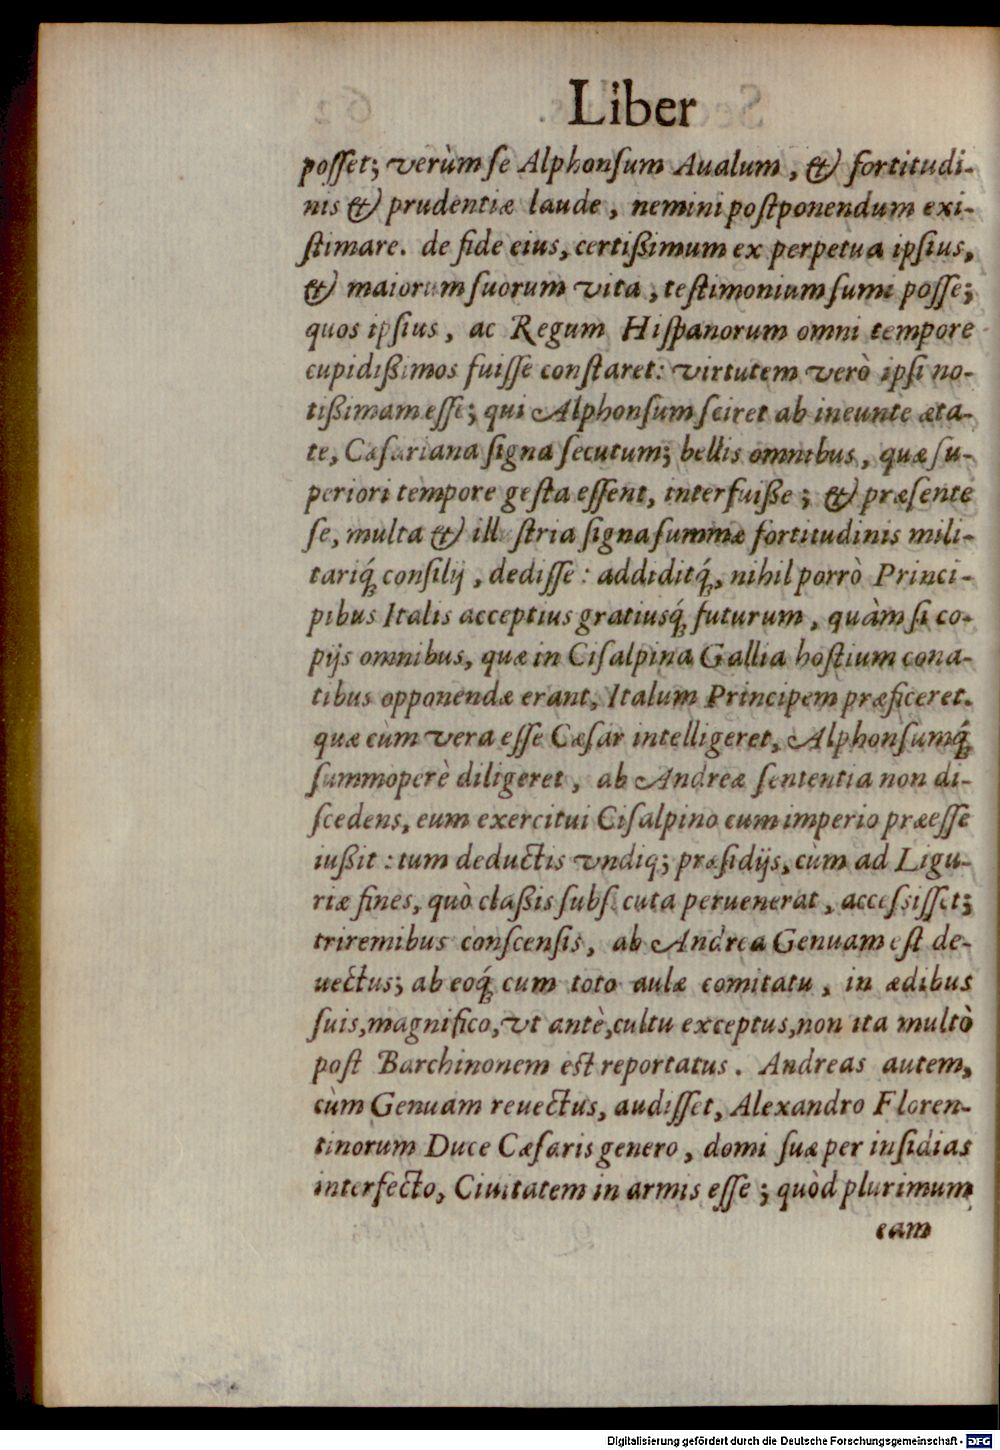 Liber
poſſet; verùm ſe Alphonſum Aualum, & fortitudi-
nis & prudentiæ laude, nemini poſtponendum exi-
ſtimare. de fide eius, certißimum ex perpetua ipſius,
& maiorum ſuorum vita, teſtimonium ſumi poſſe;
quos ipſius, ac Regum Hiſpanorum omni tempore
cupidißimos fuiſſe conſtaret: virtutem verò ipſi no-
tißimam eſſe; qui Alphonſum ſciret ab ineunte æta-
te, Cæſariana ſigna ſecutum; bellis omnibus, quæ ſu-
periori tempore geſta eſſent, interfuiße; & præſente
ſe, multa & illuſtria ſigna ſummæ fortitudinis mili-
tariq́; conſilij, dediſſe: addiditq́;, nihil porrò Princi-
pibus Italis acceptius gratiusq́; futurum, quàm ſi co-
pijs omnibus, quæ in Ciſalpina Gallia hoſtium cona-
tibus opponendæ erant, Italum Principem præficeret.
quæ cùm vera eſſe Cæſar intelligeret, Alphonſumq́;
ſummoperè diligeret, ab Andreæ ſententia non di-
ſcedens, eum exercitui Ciſalpino cum imperio præeſſe
iußit: tum deductis vndiq; præſidijs, cùm ad Ligu-
riæ fines, quò claßis ſubſecuta peruenerat, acceſsiſſet;
triremibus conſcenſis, ab Andrea Genuam eſt de-
uectus; ab eoq́; cum toto aulæ comitatu, in ædibus
ſuis, magnifico, vt antè, cultu exceptus, non ita multò
poſt Barchinonem est reportatus. Andreas autem,
cùm Genuam reuectus, audiſſet, Alexandro Floren-
tinorum Duce Cæſaris genero, domi ſuæ per inſidias
interfecto, Ciuitatem in armis eſſe; quòd plurimum
eam
Digitalisierung gefördert durch die Deutsche Forschungsgemeinschaft - DFG